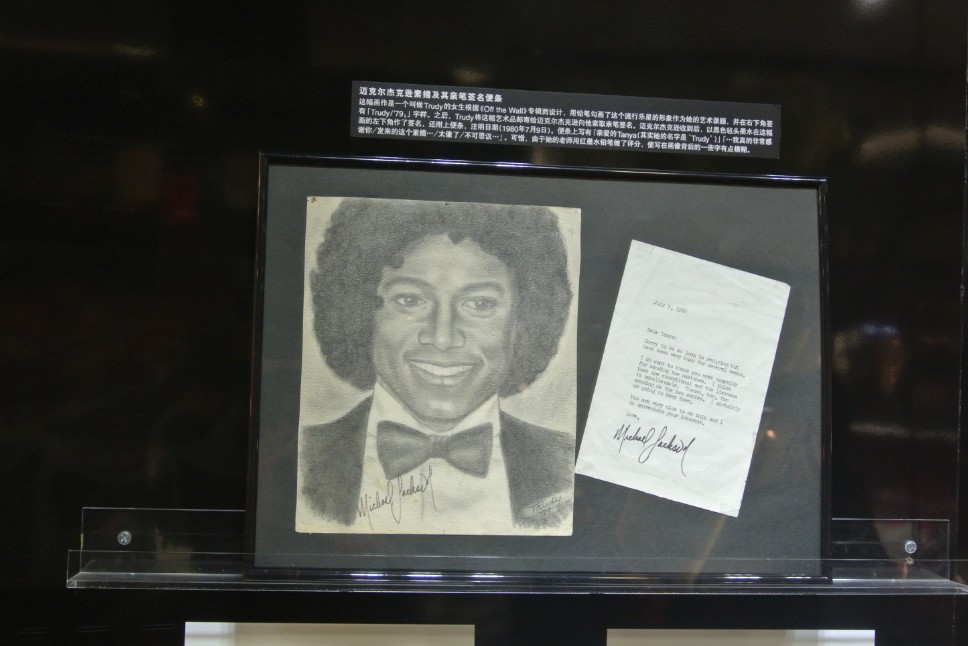 迈克尔杰克逊素描及其亲笔签名便条
这幅画作是一个叫做Trudy的女生根据《Off the Wall》专辑的设计，用铅笔勾画了这个流行乐星的形象作为她的艺术课题，并在右下角签
有「Trudy/'79」字样。之后，Trudy将这幅艺术品邮寄给迈克尔杰克逊向他索取亲笔签名。迈克尔杰克逊收到后，以黑色毡头墨水在这幅
画的左下角作了签名，还附上便条，注明日期(1980年7月9日)。便条上写有「亲爱的Tanya(其实她的名字是 'Trudy' )」「…我真的非常感
谢你/发来的这个素描…/太傻了/不可思议…」。可惜，由于她的老师用红墨水铅笔做了评分，使写在画像背后的一些字有点模糊。
Michael Jackson
Trudy
July 9, 1980
Dear Tanya:
Sorry to be so long in replying but
have been very busy for several weeks.
I do want to thank you most heartily
for sending the sketches. I think
they are exceptional and the likeness
is unbelievable. Thanks, too, for
sending me the two copies. I certainly
am going to keep them.
You are very nice to do this and I
do appreciate your interest.
Love,
Michael Jackson